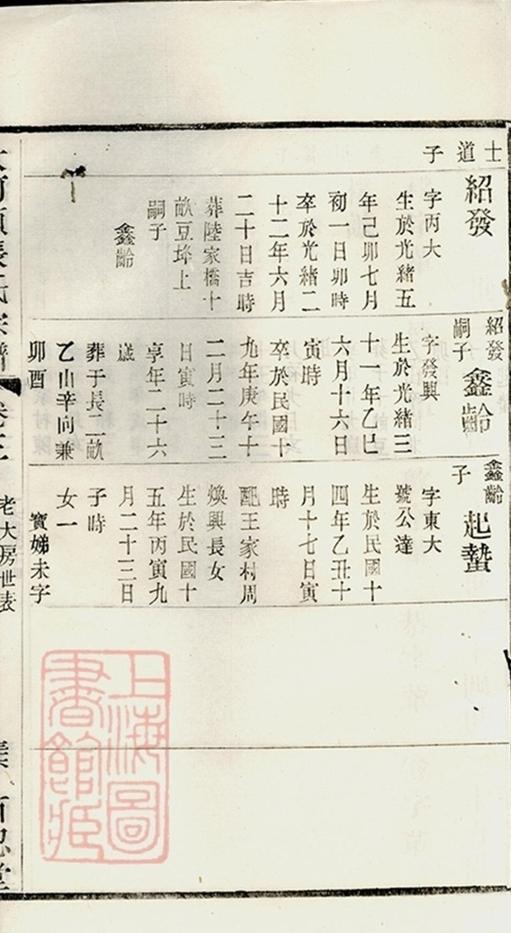 士道子
紹發
字丙大
生於光緒五
年己卯七月
初一日卯時
卒於光緒二
十二年六月
二十日吉時
葬陸家橋十
畝豆垰上
嗣子
鑫齡
紹發嗣子
鑫齡
字發興
生於光緒三
十一年乙巳
六月十六日
寅時
卒於民國十
九年庚午十
二月二十三
日寅時
享年二十六
歲
葬于長二畝
乙山辛向兼
卯酉
鑫齡子
起蟄
字東大
號公達
生於民國十
四年乙丑十
月十七日寅
時
配王家村周
煥興長女
生於民國十
五年丙寅九
月二十三日
子時
女一
寶娣未字
張氏宗譜
卷三
老大房世表
百忍堂
上海圖書館藏